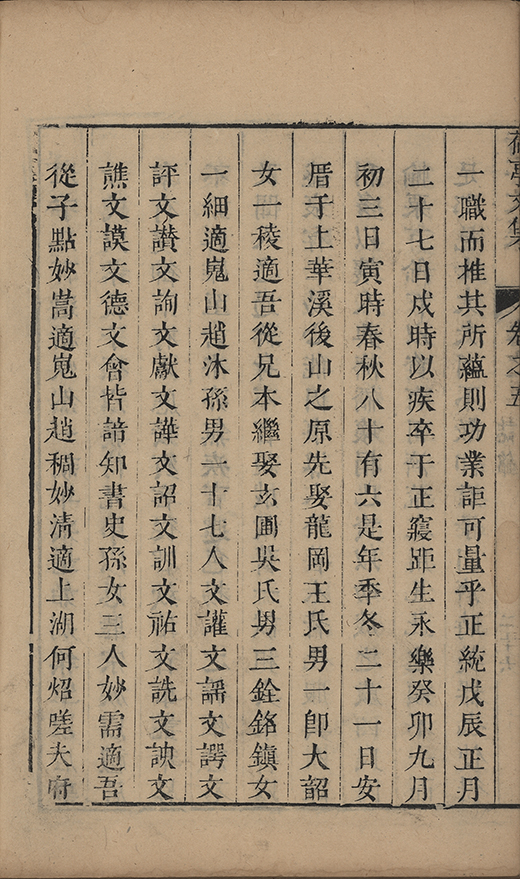 文集
卷之五
一職而推其所蘊則功業詎可量乎正統戊辰正月
二十七日戌時以疾卒于正寢距生永樂癸卯九月
初三日寅時春秋八十有六是年季冬二十一日安
厝于上華溪後山之原先娶龍岡王氏男一卽大韶
女一稜適吾從兄本繼娶玄圃吳氏男三銓銘鎮女
一細適嵬山趙沐孫男一十七人文讙文謡文諤文
評文讚文詢文獻文譁文詔文訓文祐文詵文諛文
譙文謨文德文會皆諳知書史孫女三人妙需適吾
從子點妙嵩適嵬山趙稠妙清適上湖何炤嗟夫府